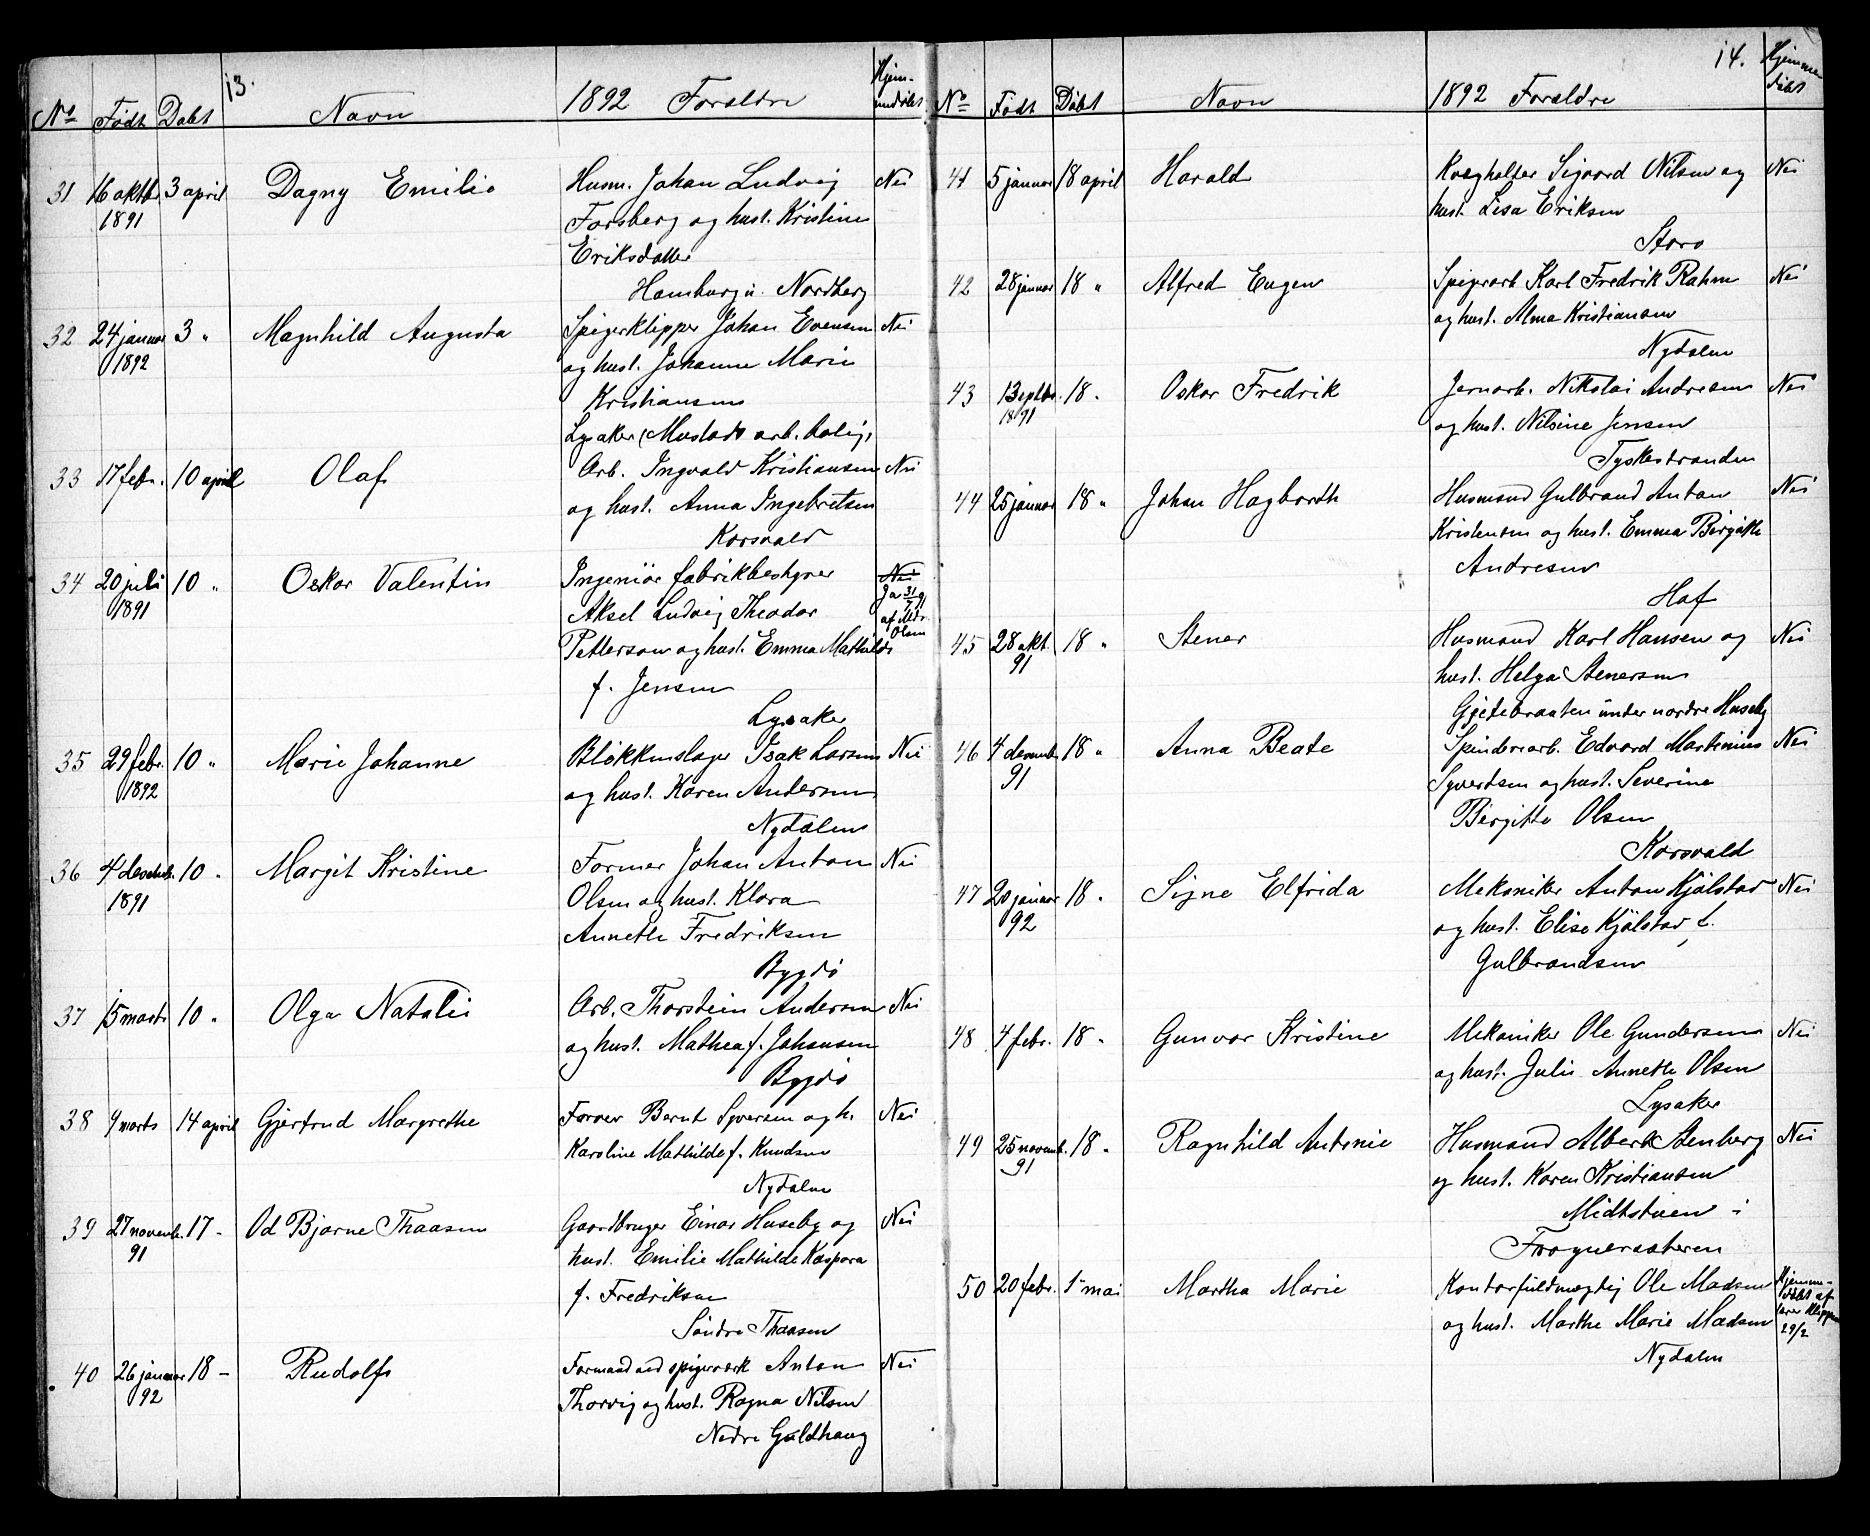 13.
No Født Døbt Navn 1892 Forældre Hjemmedøbt
31 16 oktbr 1891 3 april Dagny Emilie Husm. Johan Ludvig Nei
Forsberg og hust. Kristine
Eriksdatter
Hamburg u. Nordberg
32 24 januar 1892 3 " Magnhild Augusta Spigerklipper Johan Evensen Nei
og hust. Johanne Marie
Kristiansen
Lysaker (Mustads arb. bolig)
33 17 febr. 10 april Olaf Arb. Ingvald Kristiansen Nei
og hust. Anna Ingebretsen
Korsvald
34 20 juli 1891 10 " Oskar Valentin Ingeniør fabrikbestyrer Nei
Aksel Ludvig Theodor Ja 31/7 91
Petterson og hust. Emma Mathilde af Mdr. Olsen
f. Jensen
Lysaker
35 29 febr. 1892 10 " Marie Johanne Blökkenslager Isak Larsen Nei
og hust. Karen Andersen
Nydalen
36 4 decemb. 1891 10 " Margit Kristine Former Johan Anton Nei
Olsen og hust. Klara
Annethe Fredriksen
Bygdö
37 15 marts 10 " Olga Natalie Arb. Thorstein Andersen Nei
og hust. Mathea f. Johansen
Bygdö
38 9 marts 14 april Gjertrud Margrethe Farver Bernt Syversen og h. Nei
Karoline Mathilde f. Knudsen
Nydalen
39 27 novemb. 91 17 - Od Bjarne Thaasen Gaardbruger Einar Huseby og Nei
hust. Emilie Mathilde Kaspara
f. Fredriksen
Söndre Thaasen
40 26 januar 92 18 - Rudolf Formand ved spigerverk Anton Nei
Thorvig og hust. Ragna Nilsen
Nedre Guldhaug
14.
No Født Döbt Navn 1892 Forældre Hjemmedöbt
41 5 januar 18 april Harald Kvægholter Sigvard Nilsen og Nei
hust. Lisa Eriksen
Storo
42 28 januar 18 " Alfred Eugen Spigerarb. Karl Fredrik Rahm Nei
og hust. Alma Kristiansen
Nydalen
43 13 septbr. 1891 18 " Oskar Fredrik Jernarb. Nikolai Andresen Nei
og hust. Nilsine Jensen
Tyskestranden
44 25 januar 18 " Johan Hagbarth Husmand Gulbrand Anton Nei
Kristensen og hust. Emma Birgitte
Andresen
Hof
45 28 okt. 91 18 " Stener Husmand Karl Hansen og Nei
hust. Helga Stenersen
Gjetebraaten under nordre Huseby
46 4 decemb. 91 18 " Anna Beate Spinderiarb. Edvard Martinius Nei
Syvertsen og hust. Severine
Birgitte Olsen
Korsvald
47 20 januar 92 18 " Signe Elfrida Mekaniker Anton Kjölstad Nei
og hust. Elise Kjölstad, f.
Gulbrandsen
48 4 febr. 18 " Gunvor Kristine Mekaniker Ole Gundersen Nei
og hust. Julie Annethe Olsen
Lysaker
49 25 novemb. 91 18 " Ragnhild Antonie Husmand Albert Stenberg Nei
og hust. Karen Kristiansen
Midtstuen i
Frognersæteren
50 20 febr. 1ste mai Martha Marie Kontorfuldmægtig Ole Madsen Hjemmedöbt af
og hust. Marthe Marie Madsen lærer Klippen 29/2
Nydalen